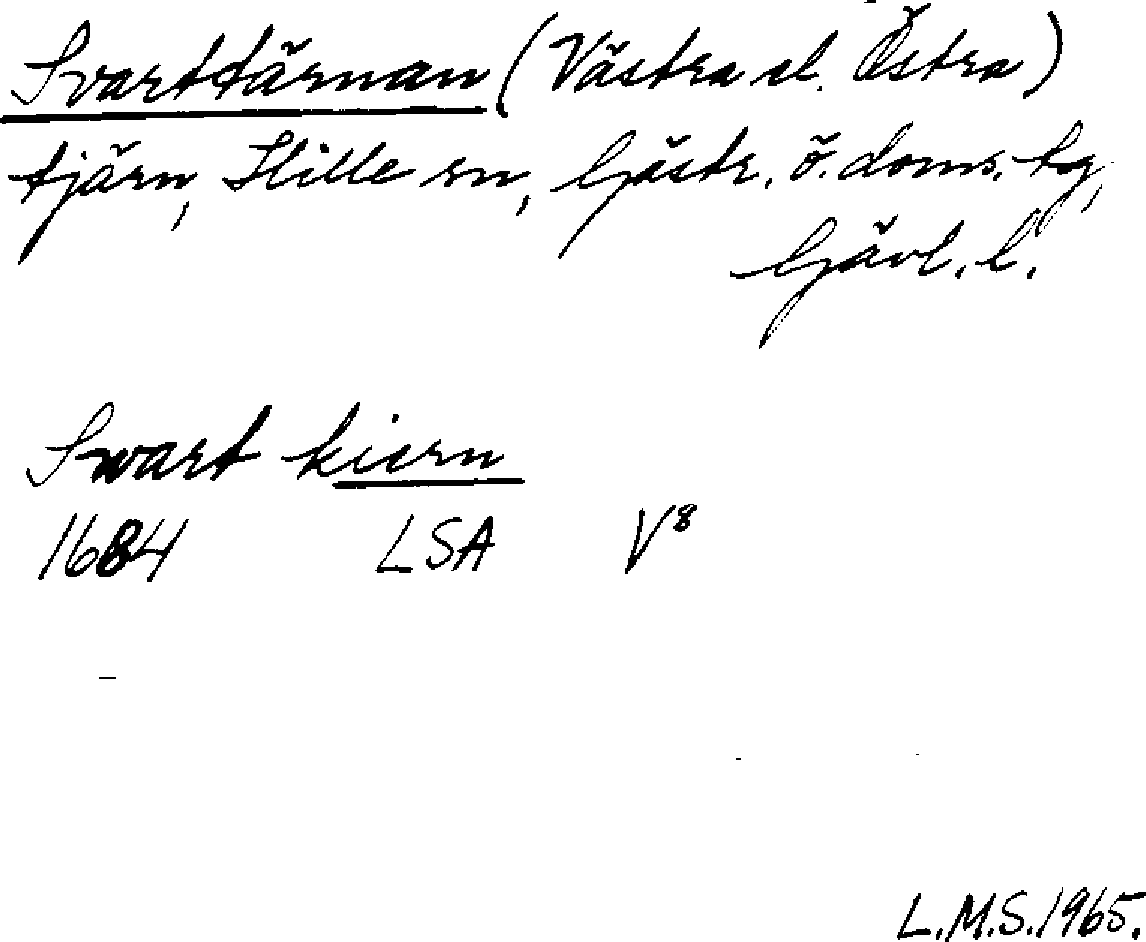 Svarttärnan (Västra el. Östra)
tjärn, Hille sn, Gästr. ö. doms. tg,
Gävl. l.
Swart kiern
1684 LSA V8
L.M.S. 1965.